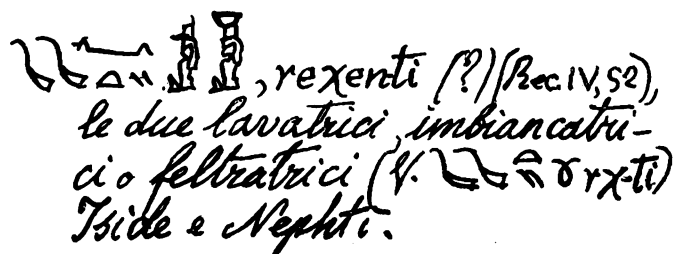 , rexenti (?) (Rec. IV, 52),
le due lavatrici, imbiancatri-
ci o feltratrici (V. rχ-ti)
Iside e Nephti.